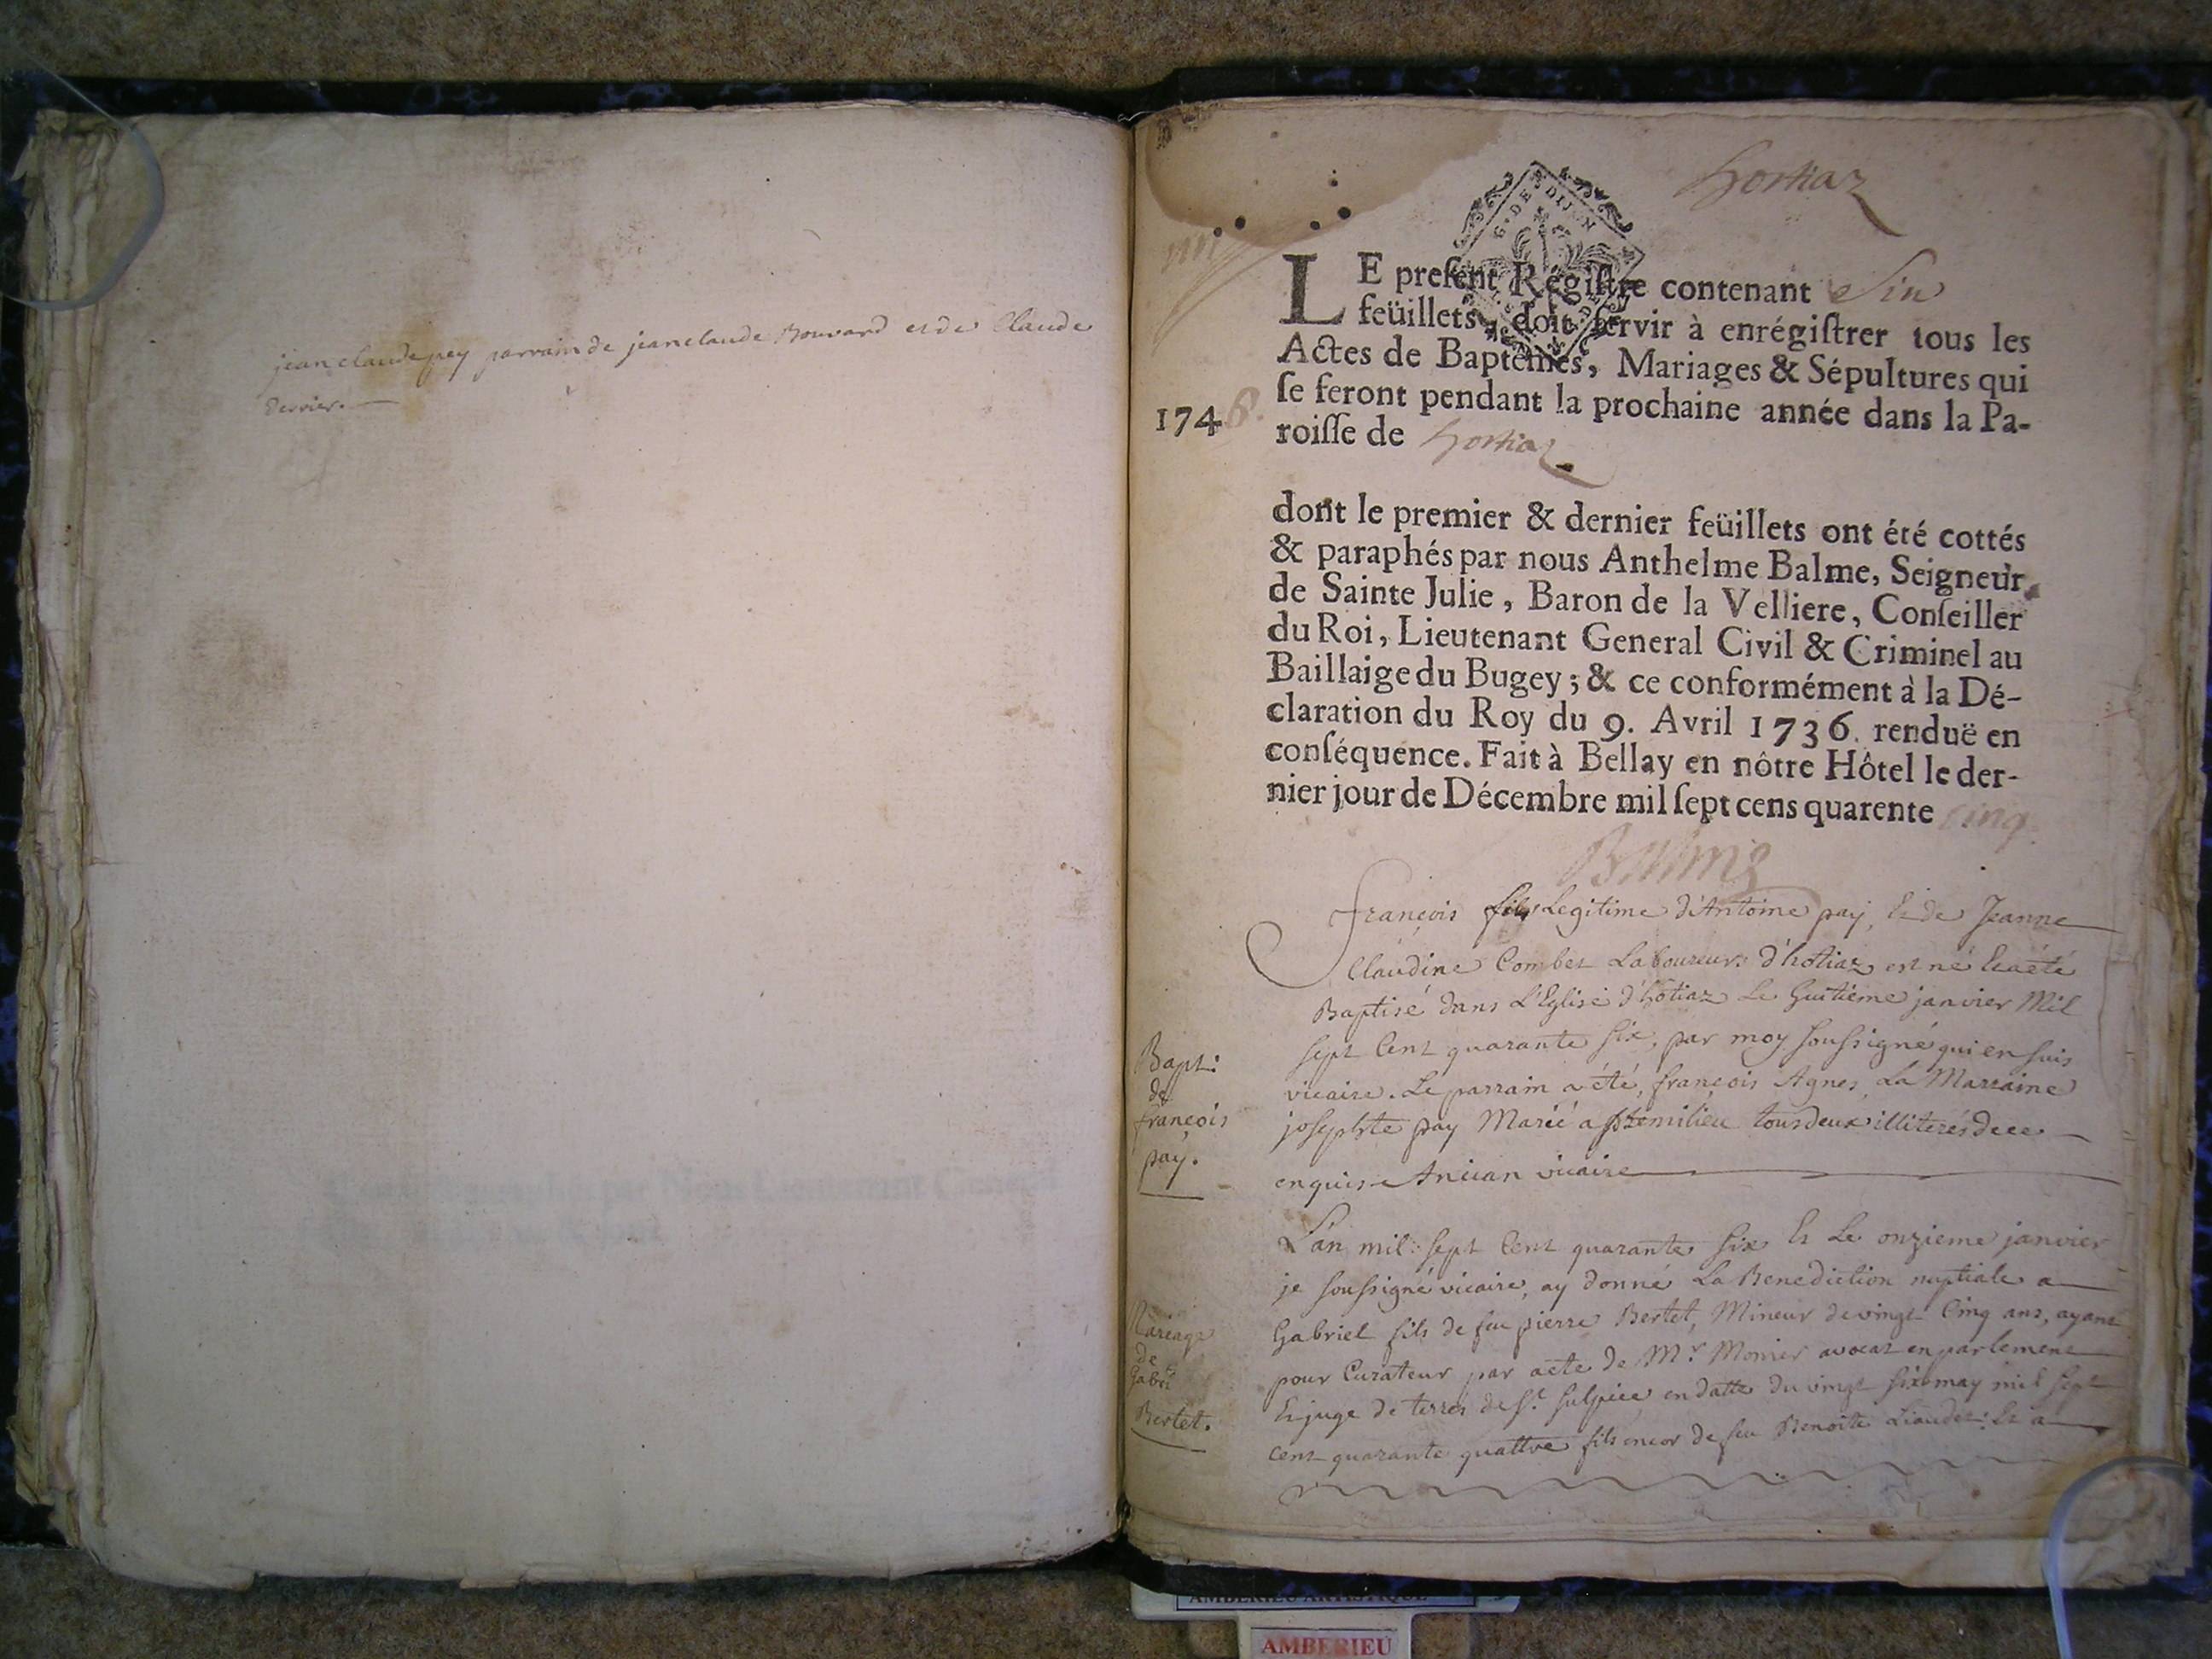 jean claude pey parrain de jean claude Bouvard et de Claude
Dervier.
hortiaz
G. DE DIJON
LE preſent Régiſtre contenant Six
feüillets, doit ſervir à enrégiſtrer tous les
Actes de Baptêmes, Mariages & Sépultures qui
ſe feront pendant la prochaine année dans la Pa-
1746.
roiſſe de hortiaz
dont le premier & dernier feüillets ont été cottés
& paraphés par nous Anthelme Balme, Seigneur
de Sainte Julie, Baron de la Velliere, Conſeiller
du Roi, Lieutenant General Civil & Criminel au
Baillaige du Bugey; & ce conformément à la Dé-
claration du Roy du 9. Avril 1736. renduë en
conſéquence. Fait à Bellay en nôtre Hôtel le der-
nier jour de Décembre mil ſept cens quarente cinq.
Balme
François fils Legitime d'Antoine pay, Et de Jeanne
Claudine Combet Laboureurs d'hotiaz est né Et a été
Baptisé dans L'Eglise d'hotiaz Le huitième janvier Mil
sept Cent quarante six, par moy soussigné qui en suis
vicaire. Le parrain a été, françois Agnes, La Marraine
josephte pay Mariée a premilieu tous deux illiterés de ce
enquis Ancian vicaire
Bapt:
de
françois
pay.
L'an mil sept Cent quarante six Et Le onzieme janvier
je soussigné vicaire, ay donné La Benediction nuptiale a
Gabriel fils de feu pierre Bertet, Mineur de vingt Cinq ans, ayant
pour Curateur par acte de Mr. Monier avocat en parlement
Et juge de terres de St. Sulpice en datte du vingt six may mil sept
cent quarante quattre fils encor de feu Benoite Liaudet: Et a
Mariage
de
Gabri
Bertet.
AMBERIEU ARTISTIQUE
AMBERIEU